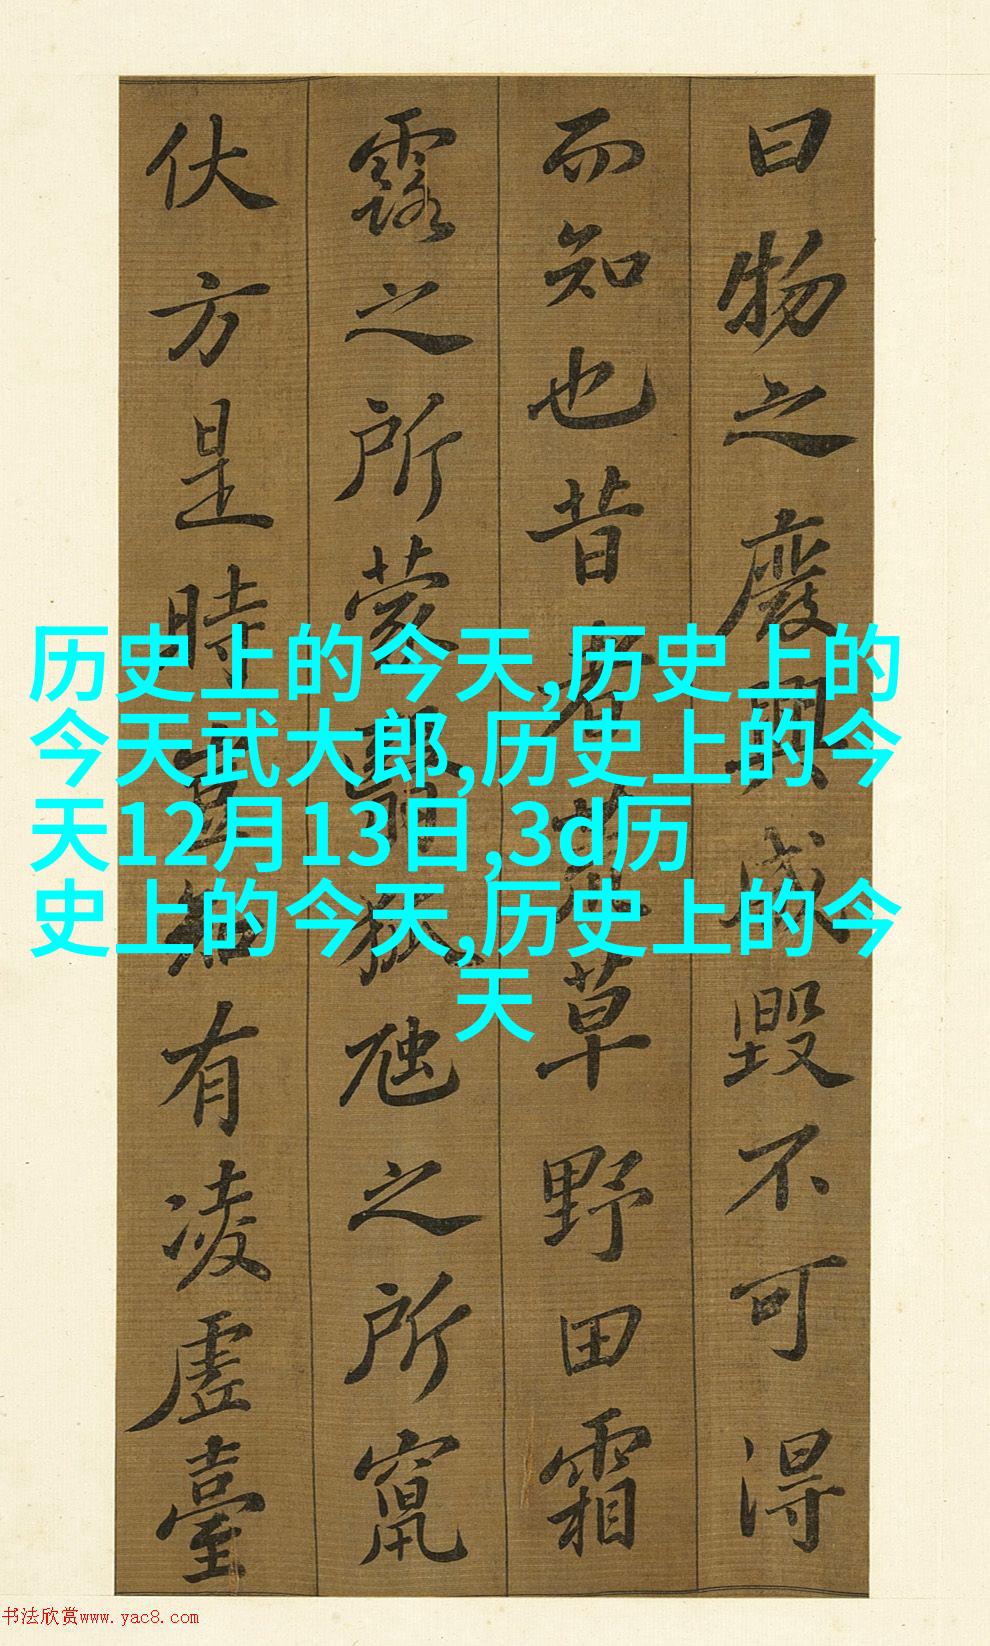 曰物之廢興成毀不可得
而知也昔者荒草野田霜
露之所蒙翳狐虺之所竄
伏方是時豈知有凌虛臺
历史上的今天,历史上的
今天武大郎,历史上的今
天12月13日,3d历
史上的今天,历史上的今
天
书法欣赏www.yac8.com